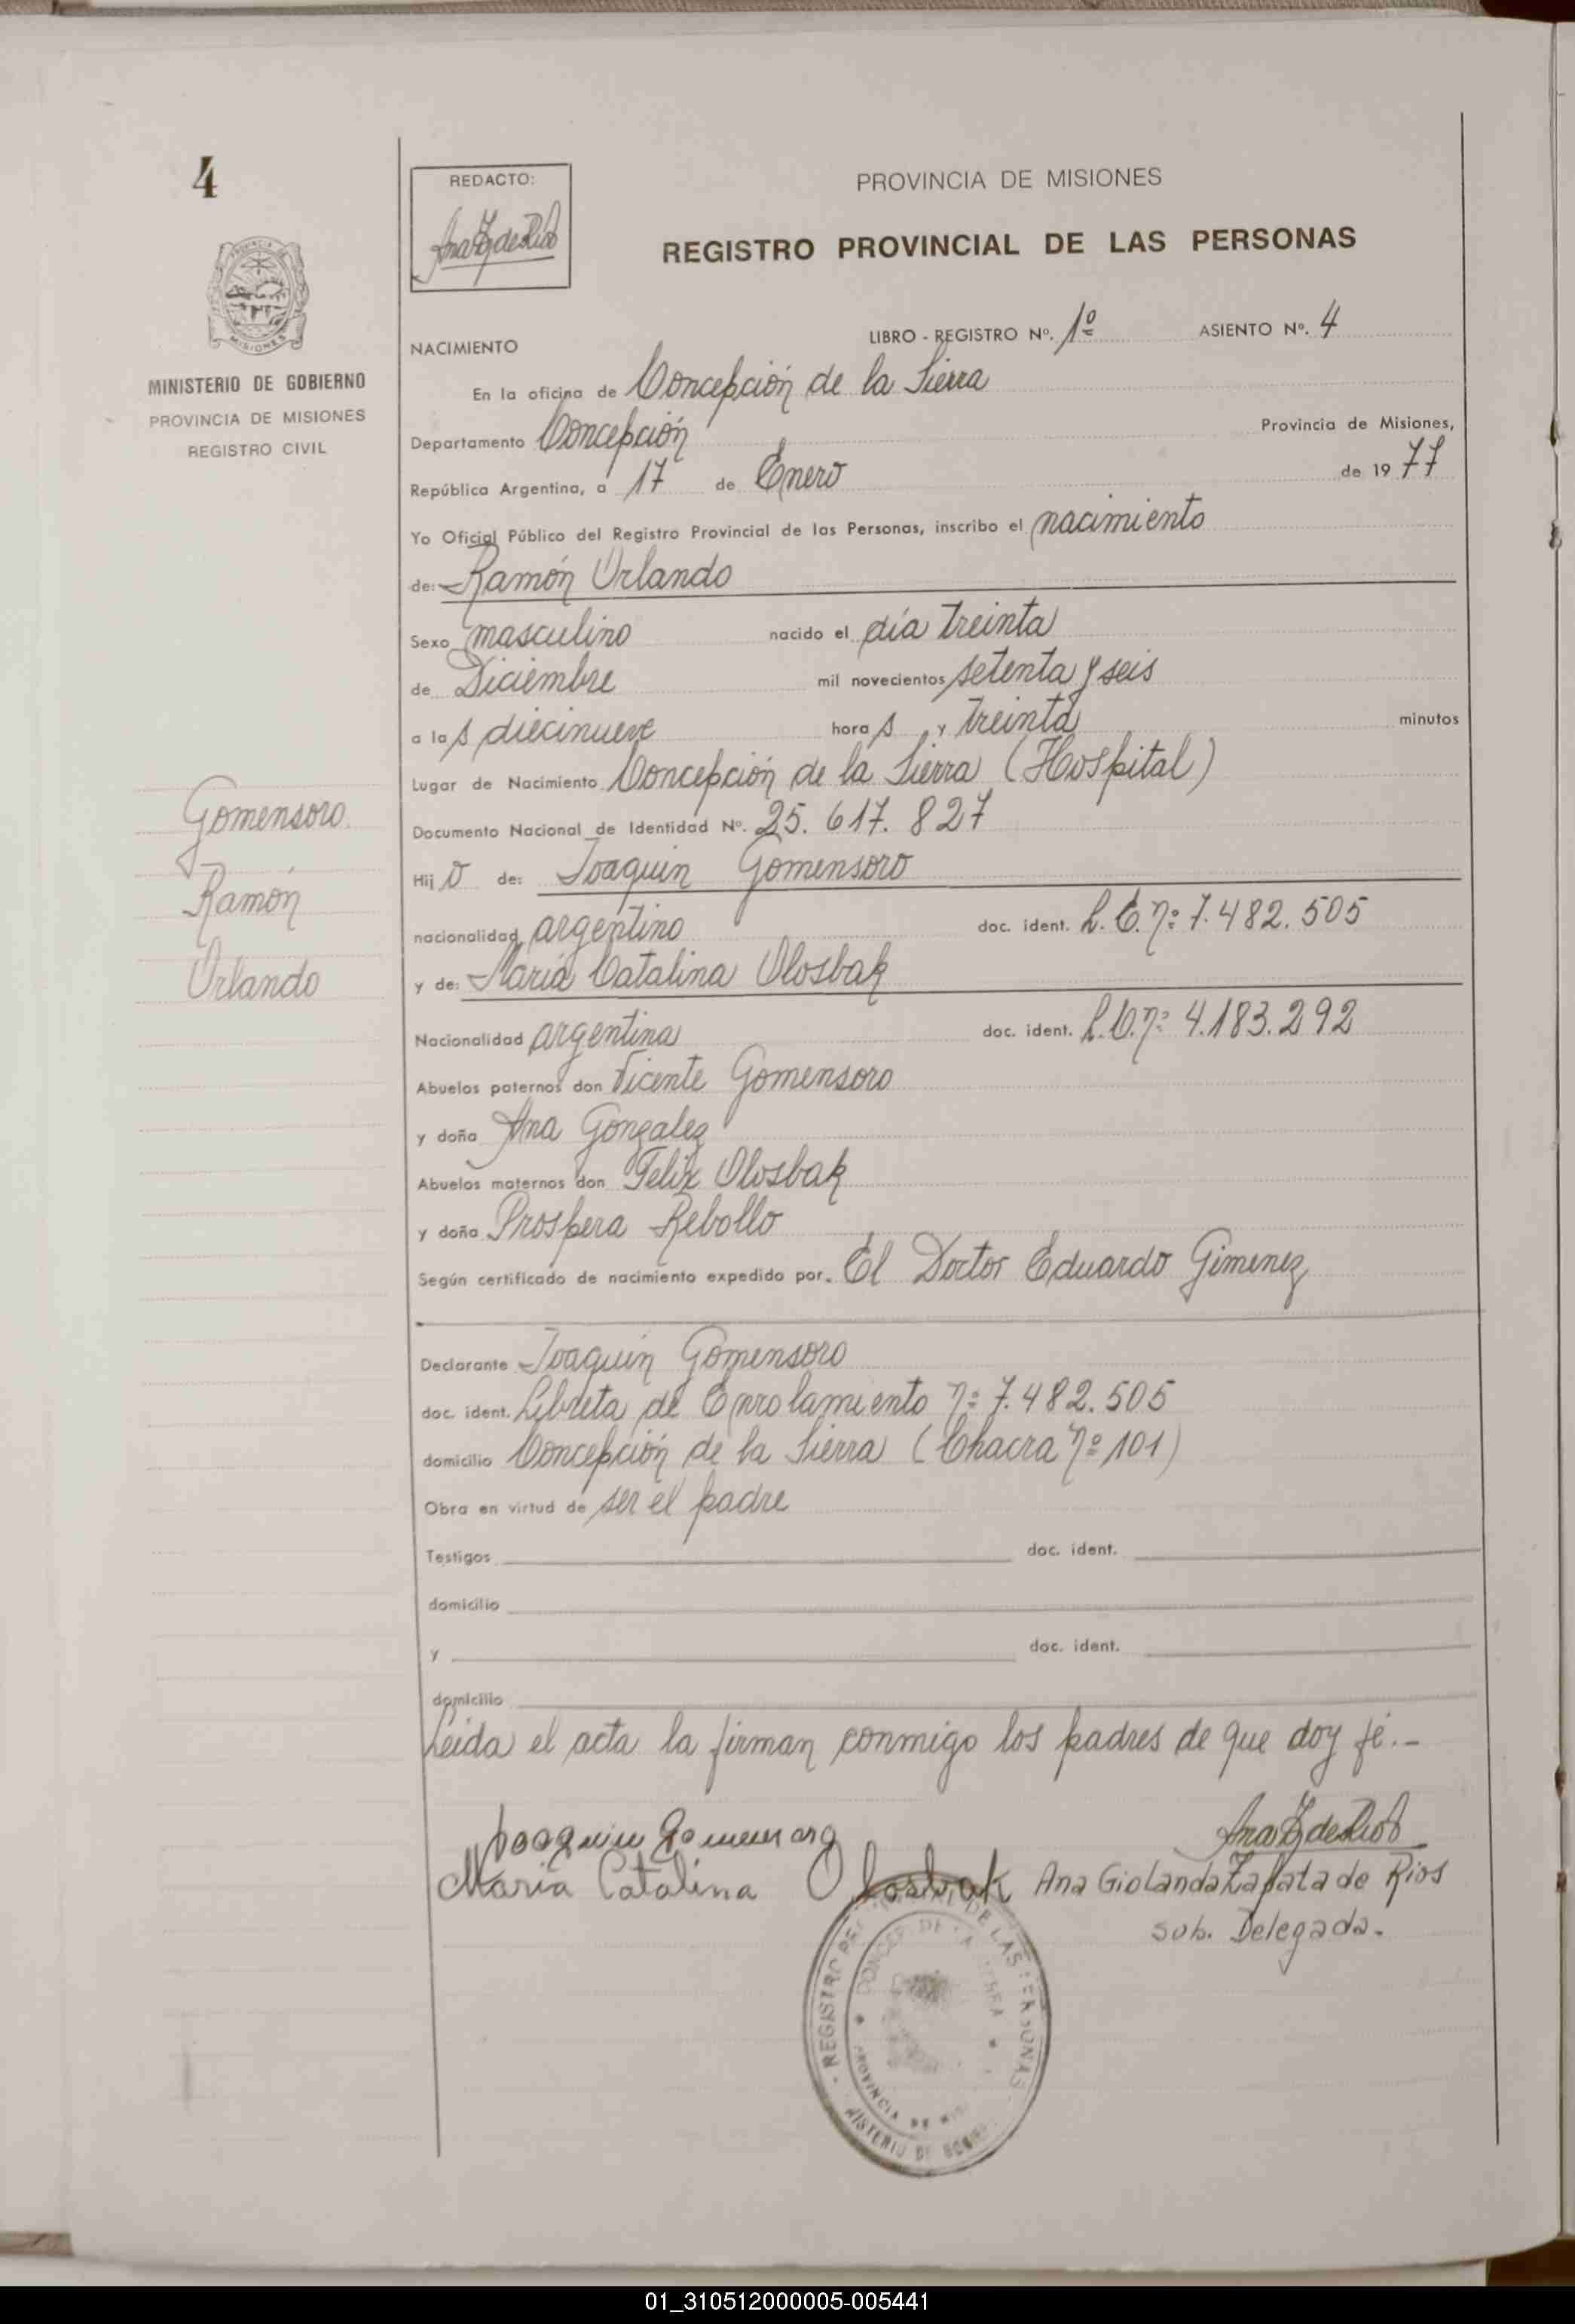 4
REDACTO:
Ana Z de Rios
PROVINCIA DE MISIONES
REGISTRO PROVINCIAL DE LAS PERSONAS
MISIONES
MINISTERIO DE GOBIERNO
PROVINCIA DE MISIONES
REGISTRO CIVIL
NACIMIENTO
LIBRO - REGISTRO Nº. 1º ASIENTO Nº. 4
En la oficina de Concepción de la Sierra
Departamento Concepción Provincia de Misiones,
República Argentina, a 17 de Enero de 1977
Yo Oficial Público del Registro Provincial de las Personas, inscribo el nacimiento
de: Ramón Orlando
Sexo masculino nacido el día treinta
de Diciembre mil novecientos setenta y seis
a las diecinueve horas y treinta minutos
Lugar de Nacimiento Concepción de la Sierra (Hospital)
Documento Nacional de Identidad Nº. 25.617.827
Hijo de: Joaquin Gomensoro
nacionalidad argentino doc. ident. L.E.nº 7.482.505
y de: Maria Catalina Olosbak
Nacionalidad argentina doc. ident. L.C.nº 4.183.292
Abuelos paternos don Vicente Gomensoro
y doña Ana Gonzalez
Abuelos maternos don Felix Olosbak
y doña Prospera Rebollo
Según certificado de nacimiento expedido por. El Doctor Eduardo Gimenez
Gomensoro
Ramón
Orlando
Declarante Joaquin Gomensoro
doc. ident. Libreta de Enrolamiento nº 7.482.505
domicilio Concepción de la Sierra (Chacra nº 101)
Obra en virtud de ser el padre
Testigos doc. ident.
domicilio
y doc. ident.
domicilio
Leida el acta la firman conmigo los padres de que doy fé.-
Joaquin Gomensoro
Ana Z de Rios
Maria Catalina Olosbak
Ana Giolanda Zapata de Rios
sub. Delegada.
REGISTRO DE LAS PERSONAS
PROVINCIA DE
01_310512000005-005441